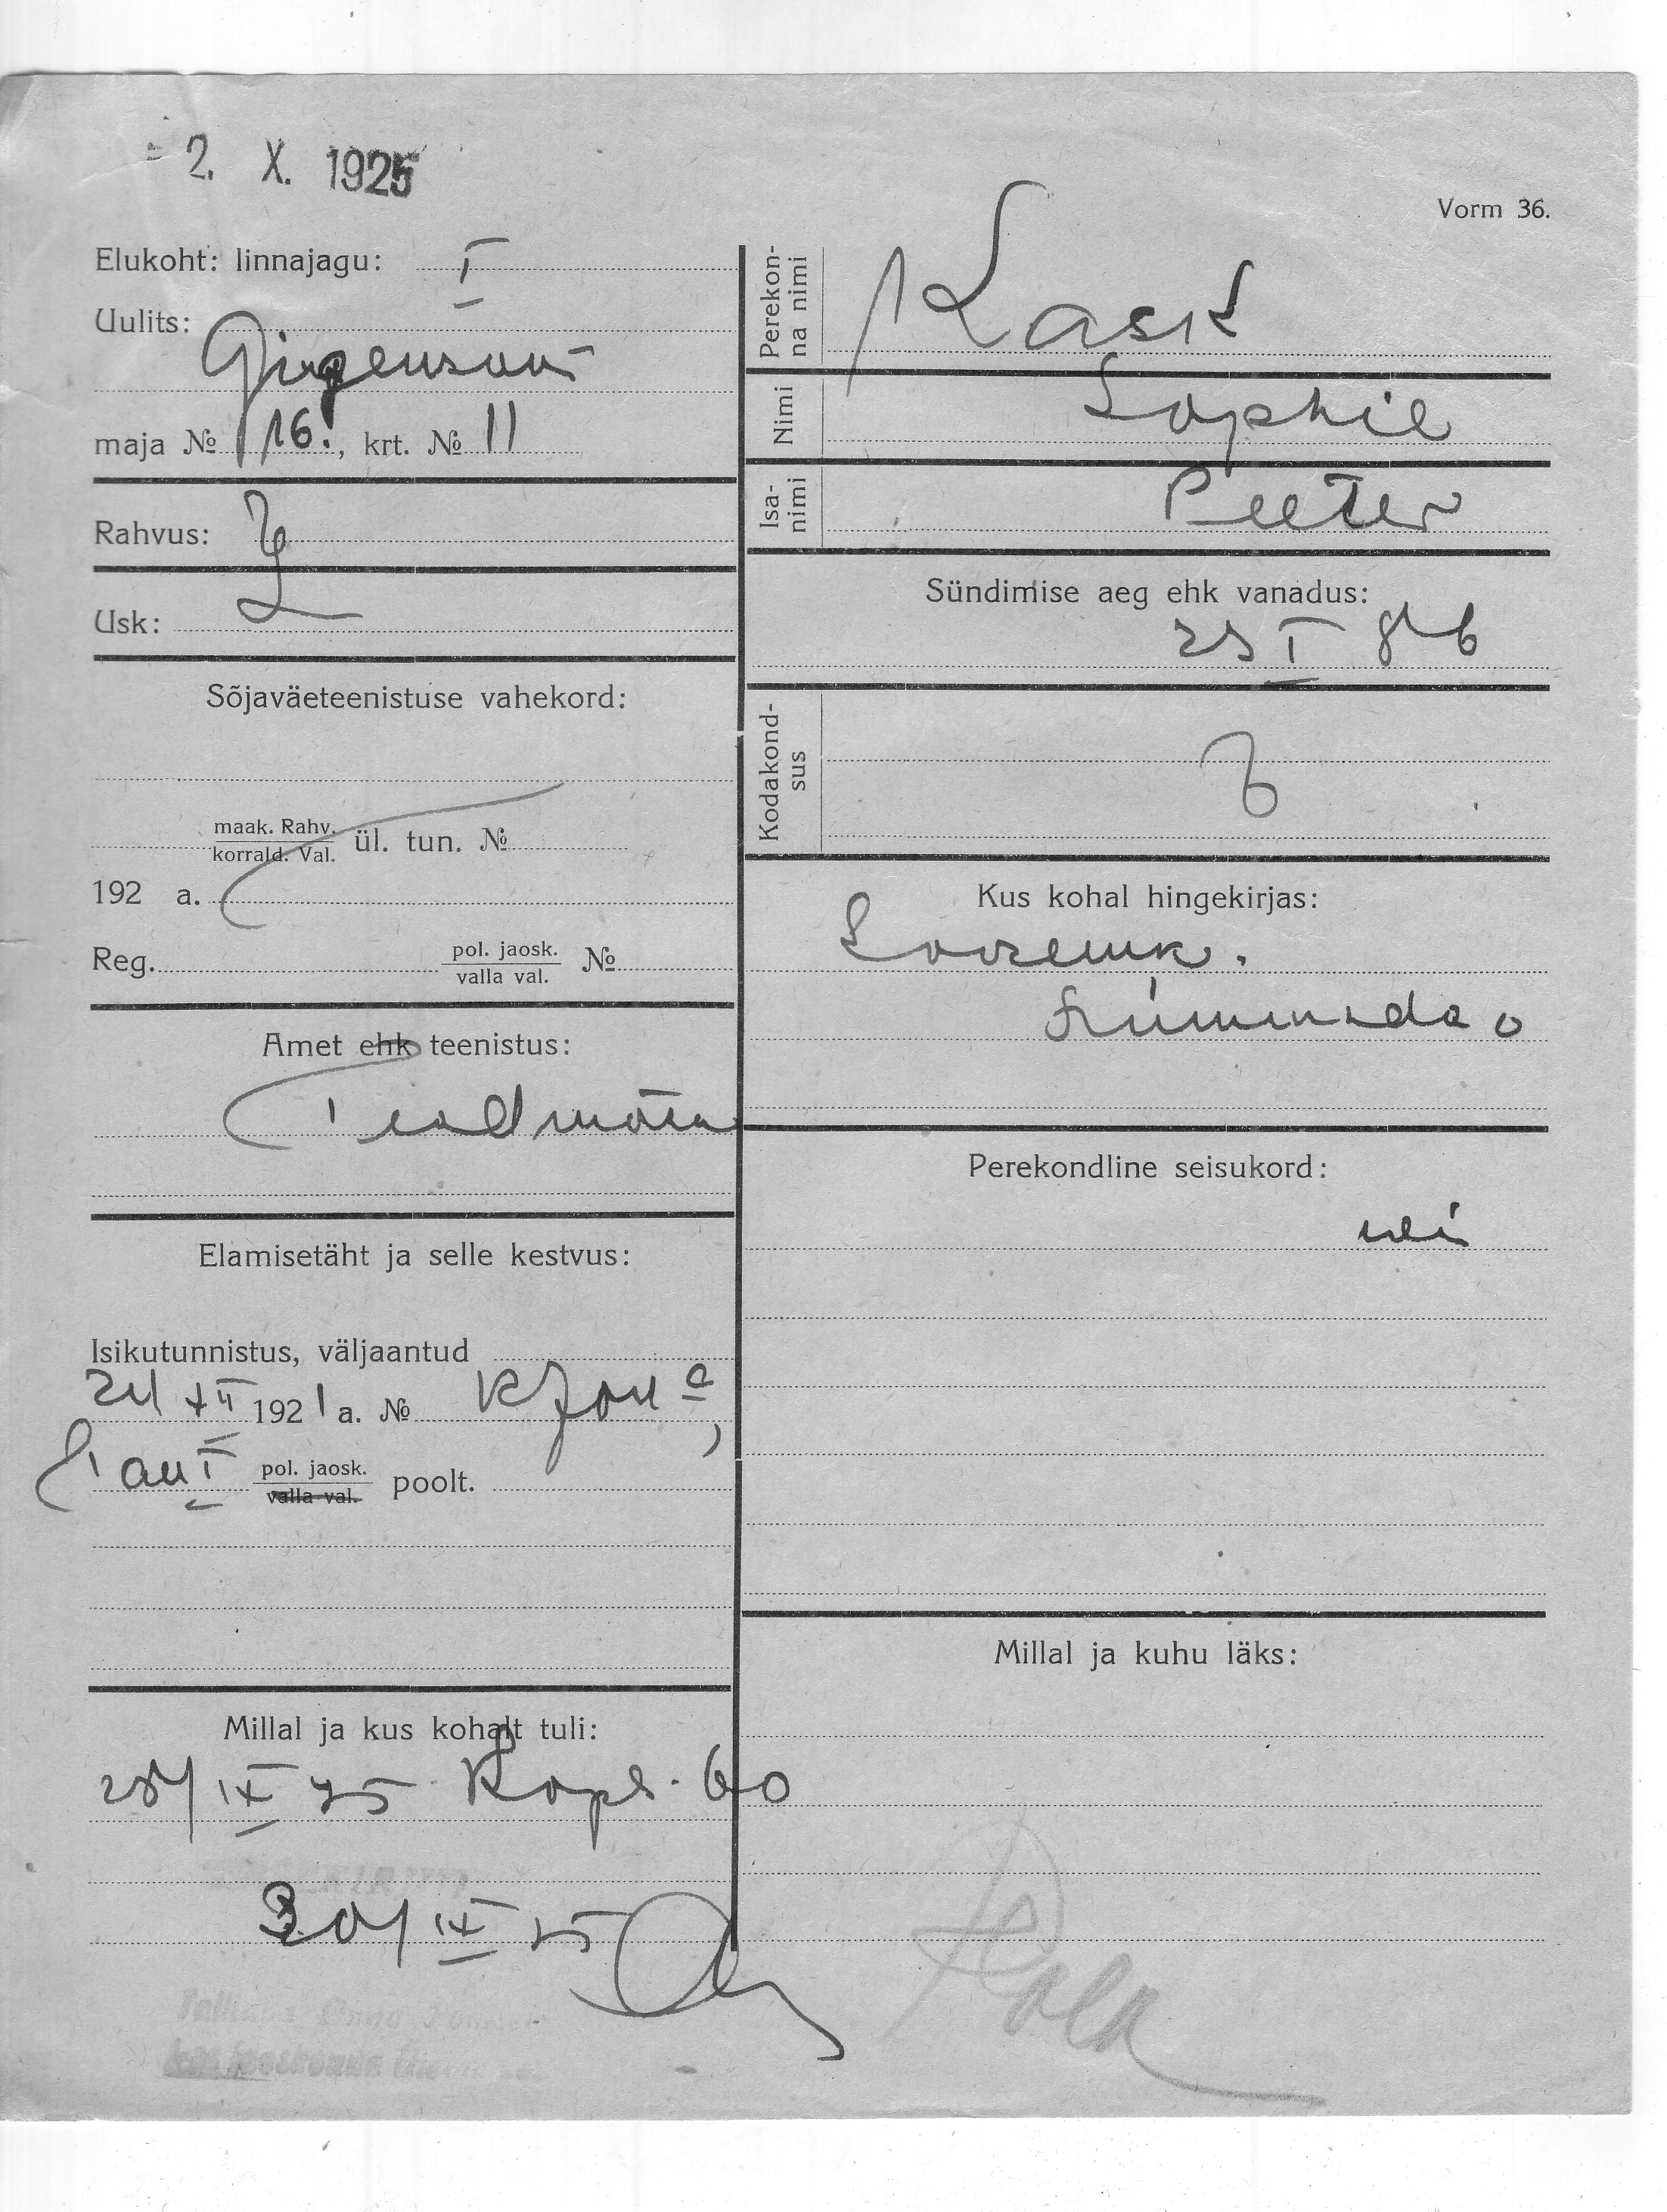 2. X. 1925
Vorm 36.
Elukoht: linnajagu: I
Uulits:
Girgensoni
maja № 16., krt. № 11
Rahvus: E
Usk: L
Sõjaväeteenistuse vahekord:
maak. Rahv.
korrald. Val. ül. tun. №
192 a.
Reg. pol. jaosk.
valla val. №
Amet ehk teenistus:
Teadmata
Elamisetäht ja selle kestvus:
Isikutunnistus, väljaantud
XII 1921 a. №
I pol. jaosk.
valla val. poolt.
Millal ja kus kohalt tuli:
IX 25 Kopl. 60
30/IX 25
Perekon-
na nimi Kask
Nimi Sophie
Isa-
nimi Peeter
Sündimise aeg ehk vanadus:
23 I 86
Kodakond-
sus E
Kus kohal hingekirjas:
Perekondline seisukord:
Millal ja kuhu läks: